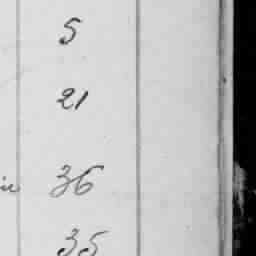 5
21
36
35